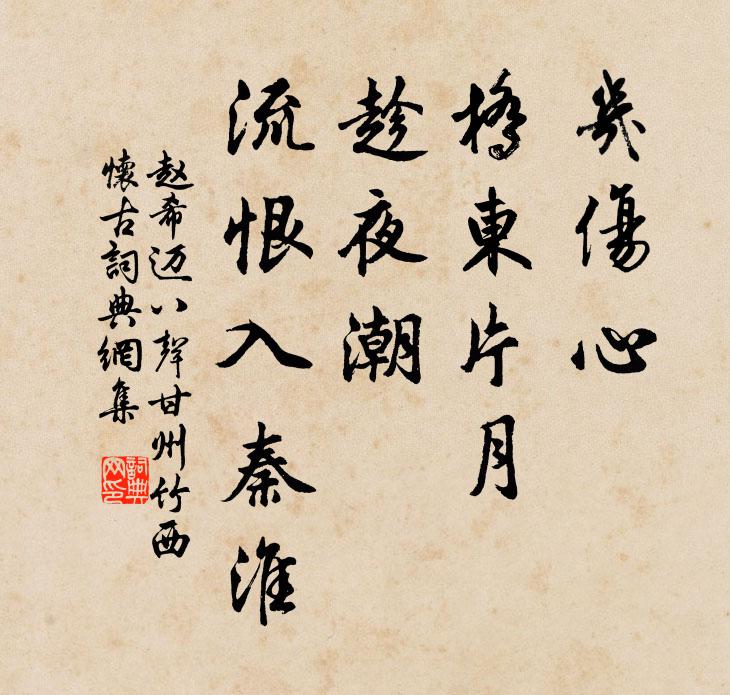 幾傷心
橋東片月
趁夜潮
流恨入秦淮
赵希迈八聲甘州竹西
懷古詞典網集
詞典网印